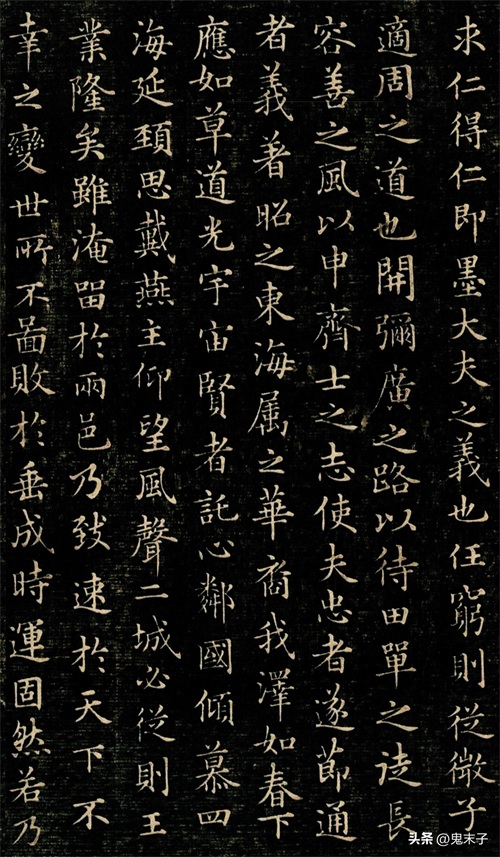 求仁得仁即墨大夫之義也任窮則従微子
適周之道也開彌廣之路以待田單之徒長
容善之風以申齊士之志使夫忠者遂節通
者義著昭之東海属之華裔我澤如春下
應如草道光宇宙賢者託心鄰國傾慕四
海延頸思戴燕主仰望風聲二城必従則王
業隆矣雖淹留於兩邑乃致速於天下不
幸之變世所不啚敗於垂成時運固然若乃
头条 @鬼末子